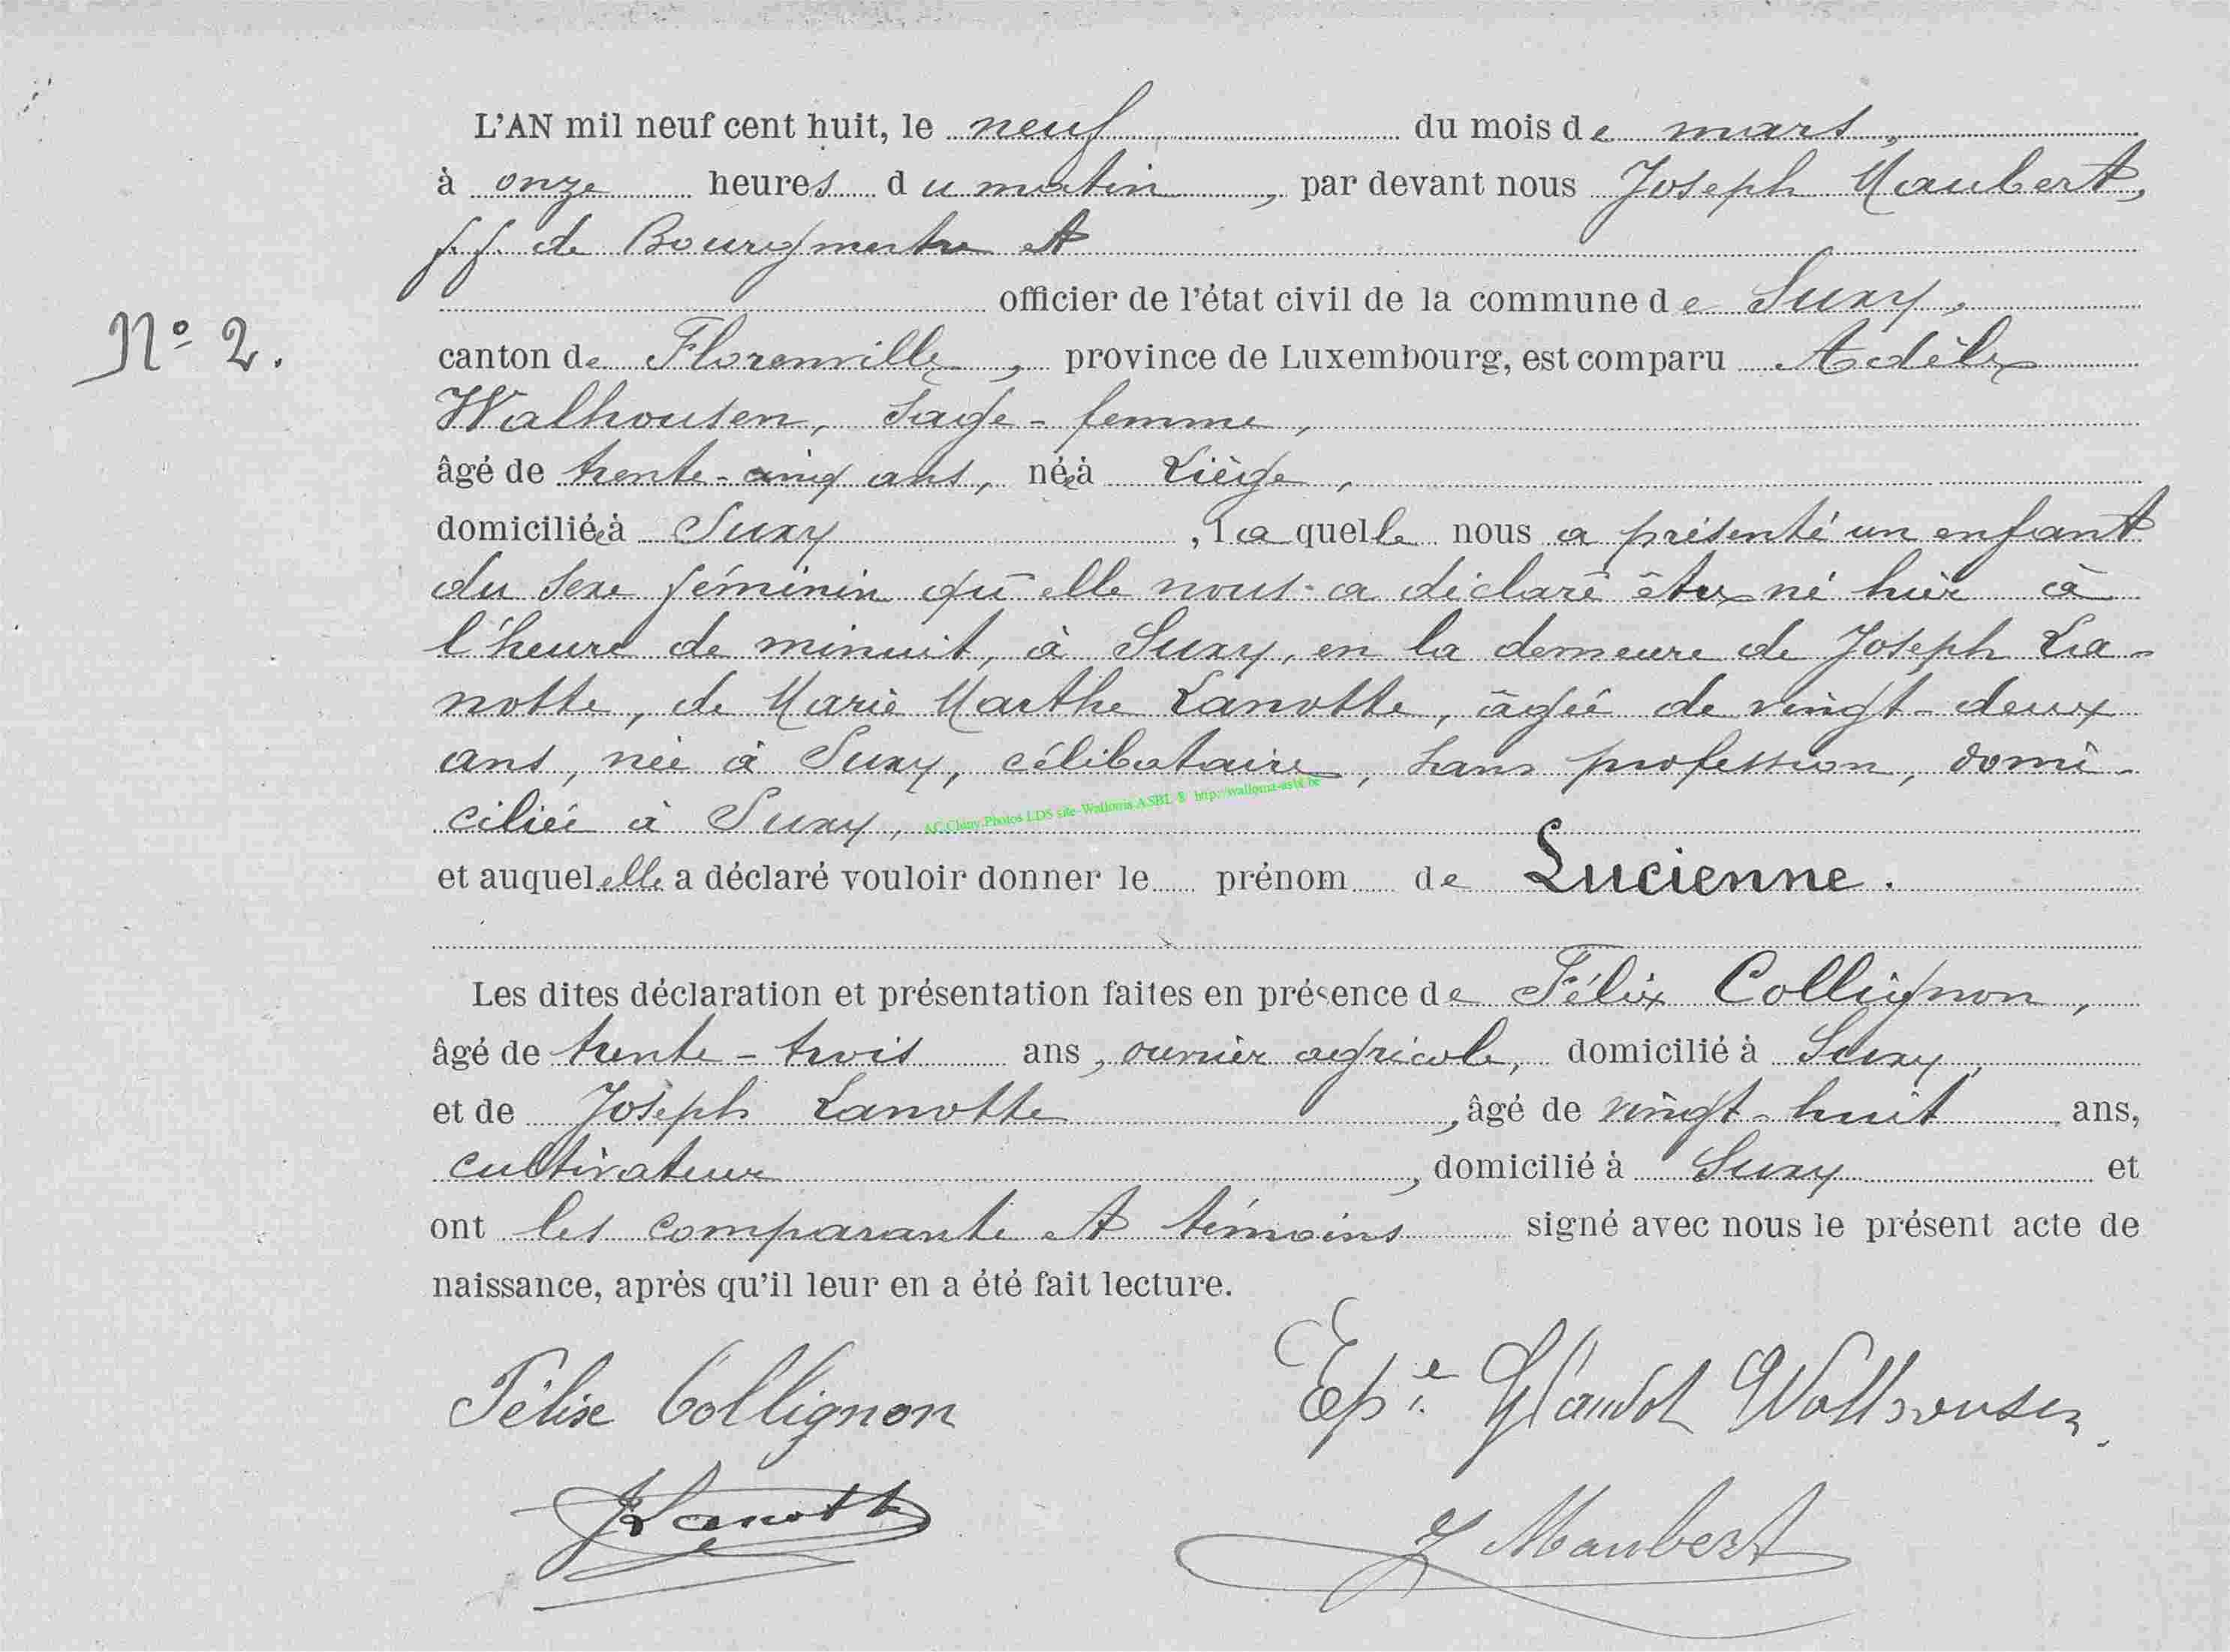 L'AN mil neuf cent huit, le neuf du mois de mars,
à onze heures du matin, par devant nous Joseph Maubert,
f.f. de Bourgmestre et
officier de l'état civil de la commune de Suxy,
N° 2.
canton de Florenville, province de Luxembourg, est comparu Adèle
Walhousen, sage-femme,
âgé de trente-cinq ans, née à Liège,
domiciliée à Suxy, laquelle nous a présenté un enfant
du sexe féminin qu'elle nous a déclaré être né hier à
l'heure de minuit, à Suxy, en la demeure de Joseph La-
notte, de Marie Marthe Lanotte, âgée de vingt-deux
ans, née à Suxy, célibataire, sans profession, domi-
ciliée à Suxy,
AC Chiny Photos LDS site-Wallonia ASBL & http://wallonia-asbl.be
et auquel elle a déclaré vouloir donner le prénom de Lucienne.
Les dites déclaration et présentation faites en présence de Félix Collignon,
âgé de trente-trois ans, ouvrier agricole, domicilié à Suxy,
et de Joseph Lanotte, âgé de vingt-huit ans,
cultivateur, domicilié à Suxy et
ont les comparante et témoins signé avec nous le présent acte de
naissance, après qu'il leur en a été fait lecture.
Félix Collignon Epse Glaudot Walhousen.
J Lanotte
J Maubert